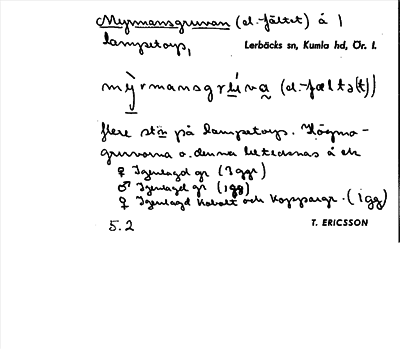 Myrmansgruvan (el. -fältet) å
Lampetorp,
Lerbäcks sn, Kumla hd, Ör. l.
mỳrmansgrúva (el. -fæltə(t))
flere stän på Lampetorp. Högmo-
gruvorna o. denna betecknas å ek
♀ Igenlagd gr (3 ggr)
♂ Igenlagd gr (1 gg)
♀ Igenlagd Kobolt och Koppargr. (1 gg)
5.2
T. ERICSSON